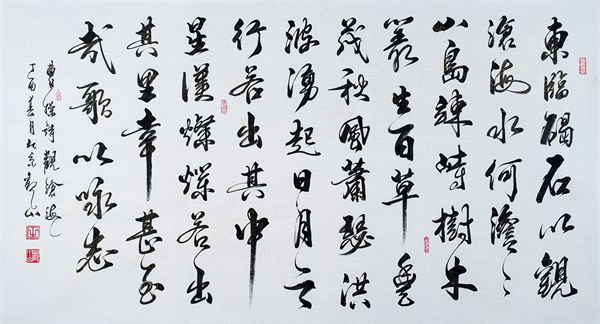 東臨碣石以觀
滄海水何澹〻
山島竦峙樹木
叢生百草豐
茂秋風蕭瑟洪
波湧起日月之
行若出其中
星漢燦爛若出
其里幸甚至
哉歌以詠志
曹操詩觀滄海
丁酉 月北京